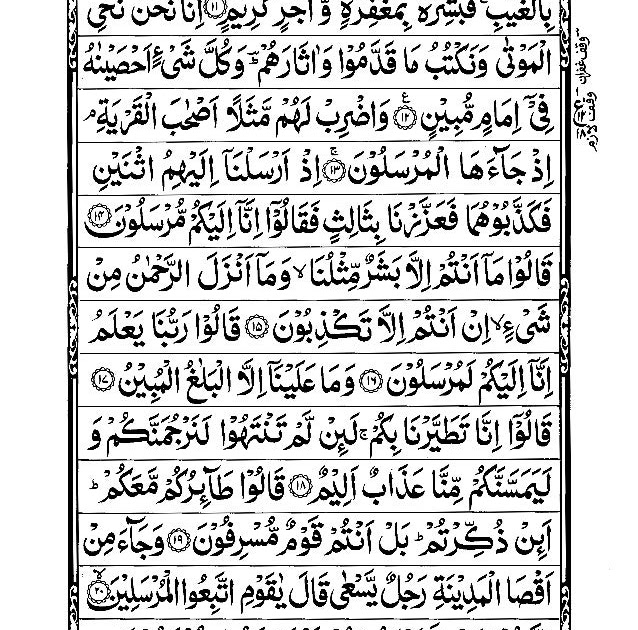 بِالْغَيْبِ ۚ فَبَشِّرْهُ بِمَغْفِرَةٍ وَّاَجْرٍ كَرِيْمٍ ۝۱۱ اِنَّا نَحْنُ نُحْيِ
الْمَوْتٰى وَنَكْتُبُ مَا قَدَّمُوْا وَاٰثَارَهُمْ ؕ وَكُلَّ شَىْءٍ اَحْصَيْنٰهُ
فِىْٓ اِمَامٍ مُّبِيْنٍ ۝۱۲ وَاضْرِبْ لَهُمْ مَّثَلًا اَصْحٰبَ الْقَرْيَةِ ۘ
اِذْ جَآءَهَا الْمُرْسَلُوْنَ ۝۱۳ۚ اِذْ اَرْسَلْنَاۤ اِلَيْهِمُ اثْنَيْنِ
فَكَذَّبُوْهُمَا فَعَزَّزْنَا بِثَالِثٍ فَقَالُوْۤا اِنَّاۤ اِلَيْكُمْ مُّرْسَلُوْنَ ۝۱۴
قَالُوْا مَاۤ اَنْتُمْ اِلَّا بَشَرٌ مِّثْلُنَا ۙ وَمَاۤ اَنْزَلَ الرَّحْمٰنُ مِنْ
شَىْءٍ ۙ اِنْ اَنْتُمْ اِلَّا تَكْذِبُوْنَ ۝۱۵ قَالُوْا رَبُّنَا يَعْلَمُ
اِنَّاۤ اِلَيْكُمْ لَمُرْسَلُوْنَ ۝۱۶ وَمَا عَلَيْنَاۤ اِلَّا الْبَلٰغُ الْمُبِيْنُ ۝۱۷
قَالُوْۤا اِنَّا تَطَيَّرْنَا بِكُمْ ۚ لَئِنْ لَّمْ تَنْتَهُوْا لَنَرْجُمَنَّكُمْ وَ
لَيَمَسَّنَّكُمْ مِّنَّا عَذَابٌ اَلِيْمٌ ۝۱۸ قَالُوْا طَآئِرُكُمْ مَّعَكُمْ ؕ
اَئِنْ ذُكِّرْتُمْ ؕ بَلْ اَنْتُمْ قَوْمٌ مُّسْرِفُوْنَ ۝۱۹ وَجَآءَ مِنْ
اَقْصَا الْمَدِيْنَةِ رَجُلٌ يَّسْعٰى قَالَ يٰقَوْمِ اتَّبِعُوا الْمُرْسَلِيْنَ ۝۲۰ۙ
وقف غفران
وقف لازم